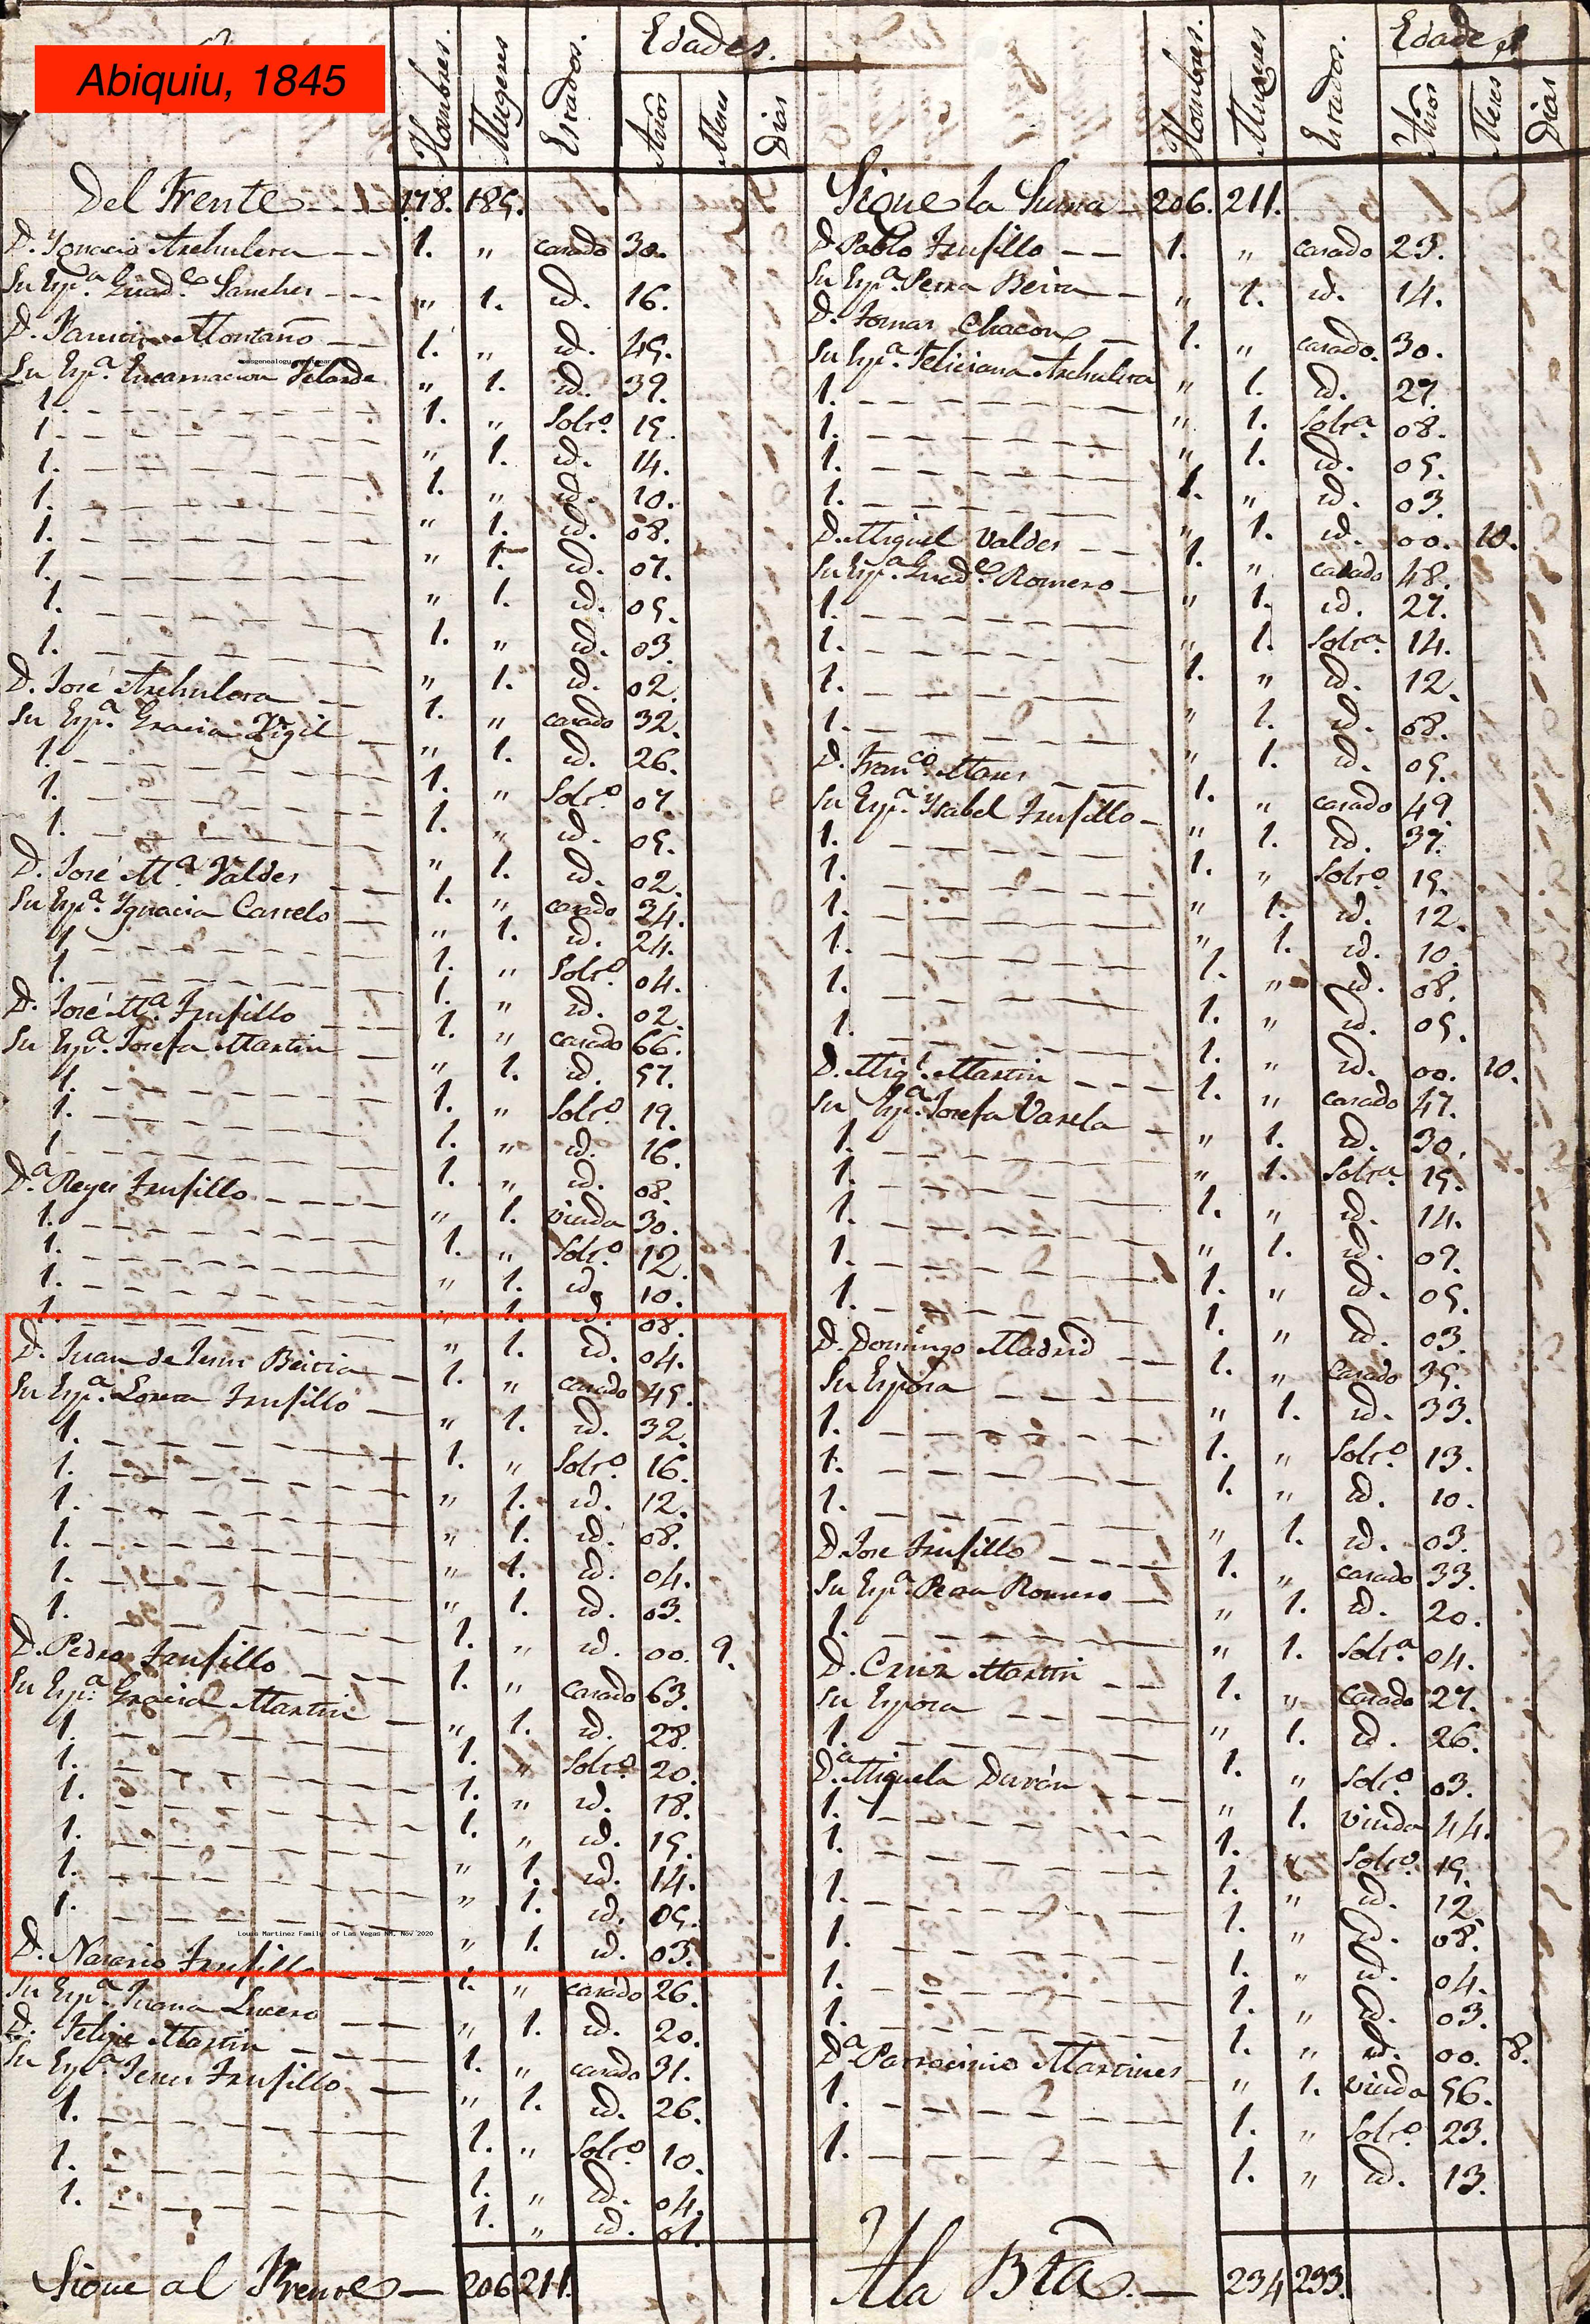 Abiquiu, 1845
Hombres. Mugeres Estados. Edades.
Años Meses Dias
Del Frente 178. 185.
D. Ygnacio Archuleta 1. " casado 30.
Su Esp.ª Guad.e Sanches " 1. id. 16.
D. Patricio Montaño 1. " id. 45.
Su Esp.ª Encarnacion Velarde " 1. id. 39.
1. 1. " Solt.o 15.
1. " 1. id. 14.
1. 1. " id. 10.
1. " 1. id. 08.
1. " 1. id. 07.
1. " 1. id. 05.
1. 1. " id. 03.
1. " 1. id. 02.
D. José Archuleta 1. " casado 32.
Su Esp.ª Gracia Vigil " 1. id. 26.
1. 1. " Solt.o 07.
1. 1. " id. 05.
1. " 1. id. 02.
D. José M.ª Valdes 1. " casado 34.
Su Esp.ª Ygnacia Castelo " 1. id. 24.
1. 1. " Solt.o 04.
1. 1. " id. 02.
D. José M.ª Trujillo 1. " casado 66.
Su Esp.ª Josefa Martin " 1. id. 57.
1. 1. " Solt.o 19.
1. 1. " id. 16.
1. 1. " id. 08.
D.ª Reyes Trujillo " 1. viuda 30.
1. 1. " Solt.o 12.
1. " 1. id. 10.
1. " 1. id. 08.
1. " 1. id. 04.
D. Juan de Jesus Beitia 1. " casado 45.
Su Esp.ª Trujillo " 1. id. 32.
1. 1. " Solt.o 16.
1. " 1. id. 12.
1. " 1. id. 08.
1. " 1. id. 04.
1. " 1. id. 03.
1. 1. " id. 00. 9.
D. Pedro Trujillo 1. " casado 63.
Su Esp.ª Gracia Martin " 1. id. 28.
1. 1. " Solt.o 20.
1. 1. " id. 18.
1. 1. " id. 15.
1. " 1. id. 14.
1. " 1. id. 05.
1. " 1. id. 03.
Louis Martinez Family of Las Vegas NM, Nov 2020
D. Nasario Trujillo 1. " casado 26.
Su Esp.ª Juana Lucero " 1. id. 20.
D. Felipe Martin 1. " casado 31.
Su Esp.ª Jesus Trujillo " 1. id. 26.
1. 1. " Solt.o 10.
1. 1. " id. 04.
1. 1. " id. 01.
Sigue al Frente 206 211.
Hombres. Mugeres Estados. Edades
Años Meses Dias
Sigue la Suma 206. 211.
D. Pablo Trujillo 1. " casado 23.
Su Esp.ª Beitia " 1. id. 14.
D. Tomas Chacon 1. " casado. 30.
Su Esp.ª Feliciana Archuleta " 1. id. 27.
1. " 1. Solt.ª 08.
1. " 1. id. 05.
1. 1. " id. 03.
1. " 1. id. 00. 10.
D. Miguel Valdes 1. " casado 48.
Su Esp.ª Guad.e Romero " 1. id. 27.
1. " 1. Solt.ª 14.
1. 1. " id. 12.
1. " 1. id. 08.
1. " 1. id. 05.
D. Fran.co Mares 1. " casado 49.
Su Esp.ª Ysabel Trujillo " 1. id. 37.
1. 1. " Solt.o 15.
1. " 1. id. 12.
1. " 1. id. 10.
1. 1. " id. 08.
1. 1. " id. 05.
1. 1. " id. 00. 10.
D. Mig.l Martin 1. " casado 47.
Su Esp.ª Josefa Varela " 1. id. 30.
1. " 1. Solt.ª 15.
1. 1. " id. 14.
1. " 1. id. 07.
1. 1. " id. 05.
1. 1. " id. 03.
D. Domingo Madrid 1. " casado 35.
Su Esposa " 1. id. 33.
1. 1. " Solt.o 13.
1. 1. " id. 10.
1. " 1. id. 03.
D. Jose Trujillo 1. " casado 33.
Su Esp.ª Romero " 1. id. 20.
1. " 1. Solt.ª 04.
D. Cruz Martin 1. " casado 27.
Su Esposa " 1. id. 26.
1. 1. " Solt.o 03.
D.ª Miguela Durán " 1. viuda 44.
1. 1. " Solt.o 15.
1. 1. " id. 12
1. 1. " id. 08.
1. 1. " id. 04.
1. 1. " id. 03.
1. 1. " id. 00. 8.
D.ª Patrocinio Martines " 1. viuda 56.
1. 1. " Solt.o 23.
1. 1. " id. 13.
A la Bta. 234 233.